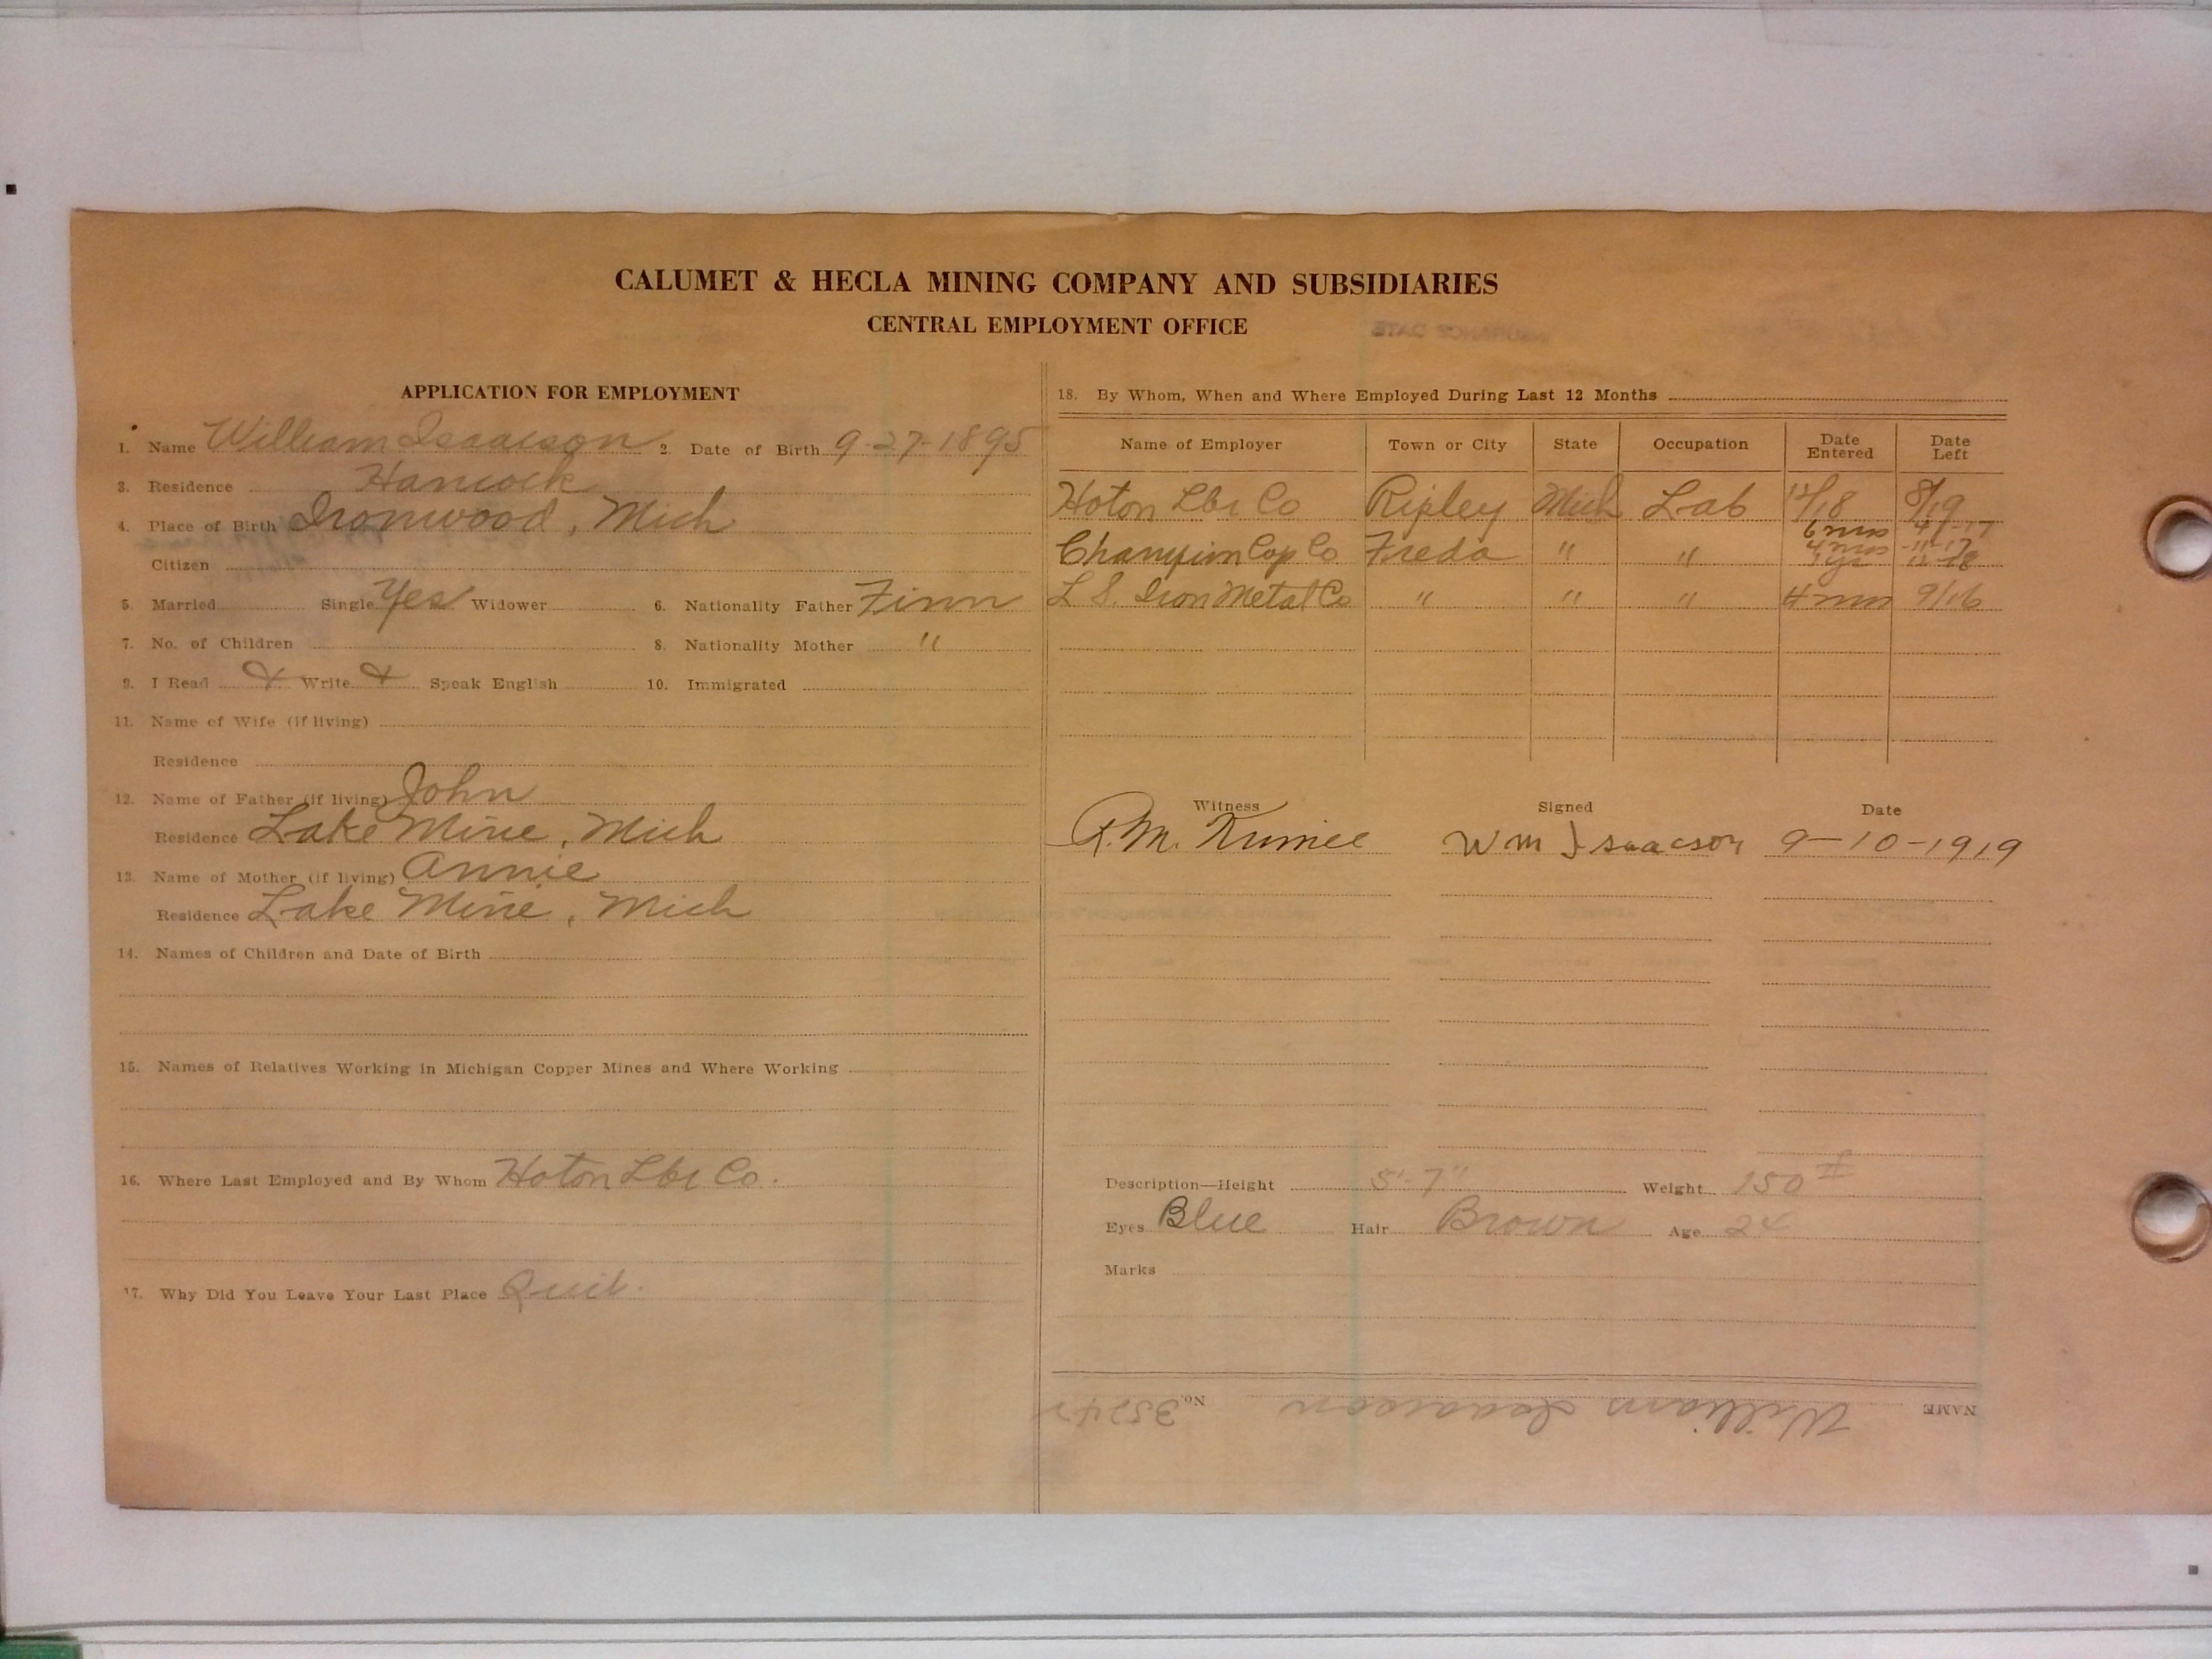 CALUMET & HECLA MINING COMPANY AND SUBSIDIARIES
CENTRAL EMPLOYMENT OFFICE
APPLICATION FOR EMPLOYMENT
1. Name William Isaacson 2. Date of Birth 9-27-1895
3. Residence Hancock
4. Place of Birth Ironwood, Mich
Citizen
5. Married Single Yes Widower 6. Nationality Father Finn
7. No. of Children 8. Nationality Mother "
9. I Read Write Speak English 10. Immigrated
11. Name of Wife (if living)
Residence
12. Name of Father (if living) John
Residence Lake Mine, Mich
13. Name of Mother (if living) Annie
Residence Lake Mine, Mich
14. Names of Children and Date of Birth
15. Names of Relatives Working in Michigan Copper Mines and Where Working
16. Where Last Employed and By Whom Hoton Lbr Co.
17. Why Did You Leave Your Last Place Quit.
18. By Whom, When and Where Employed During Last 12 Months
Name of Employer Town or City State Occupation Date Entered Date Left
Hoton Lbr Co Ripley Mich Lab 12/18 8/19
Champion Cop Co Freda " " 6 mos 4 mos 1 yr
L S. Iron Metal Co " " " 4 mos 9/16
Witness Signed Date
Wm Isaacson 9-10-1919
Description—Height 5'-7" Weight 150 #
Eyes Blue Hair Brown Age 24
Marks
NAME William Isaacson No.